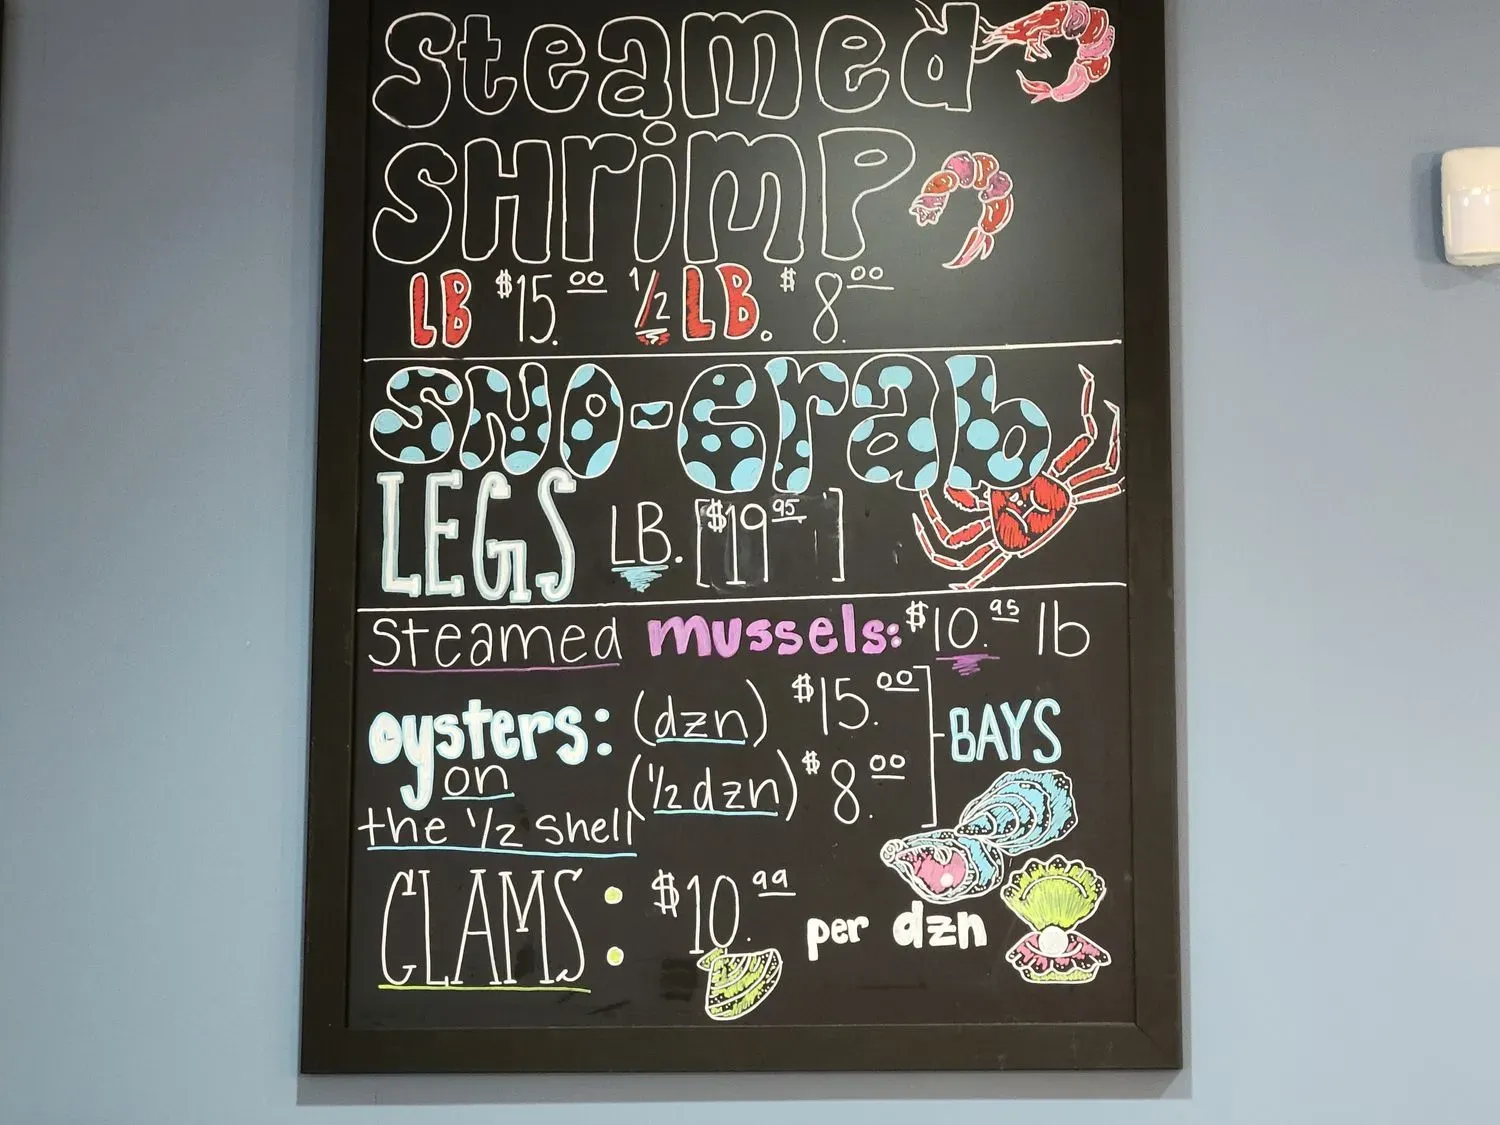 Steamed
SHrimP
LB $15.00 1/2 LB. $8.00
SNO-Crab
LEGS LB. [$19.95]
Steamed mussels: $10.95 lb
oysters: (dzn) $15.00
on (1/2 dzn) $8.00 BAYS
the 1/2 shell
CLAMS: $10.99 per dzn